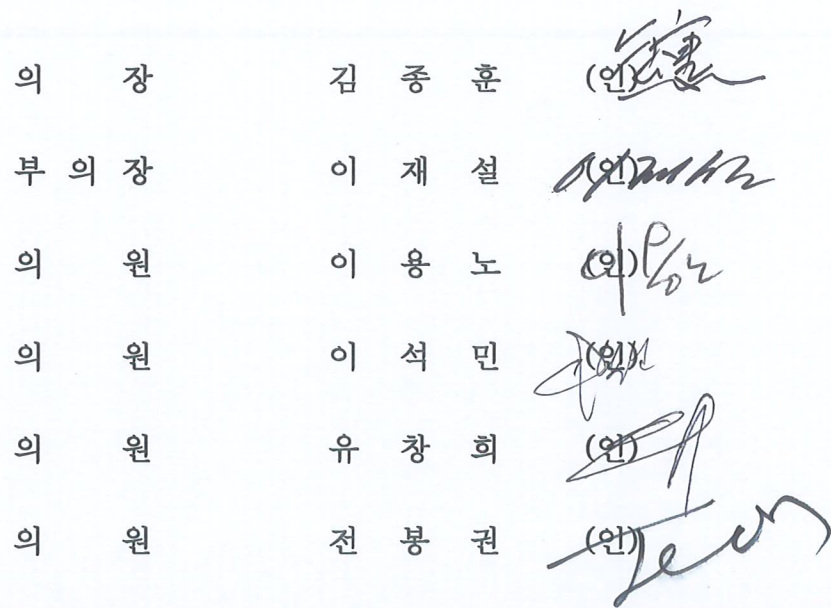 의 장 김 종 훈 (인)
부 의 장 이 재 설 (인)
의 원 이 용 노 (인)
의 원 이 석 민 (인)
의 원 유 창 희 (인)
의 원 전 봉 권 (인)